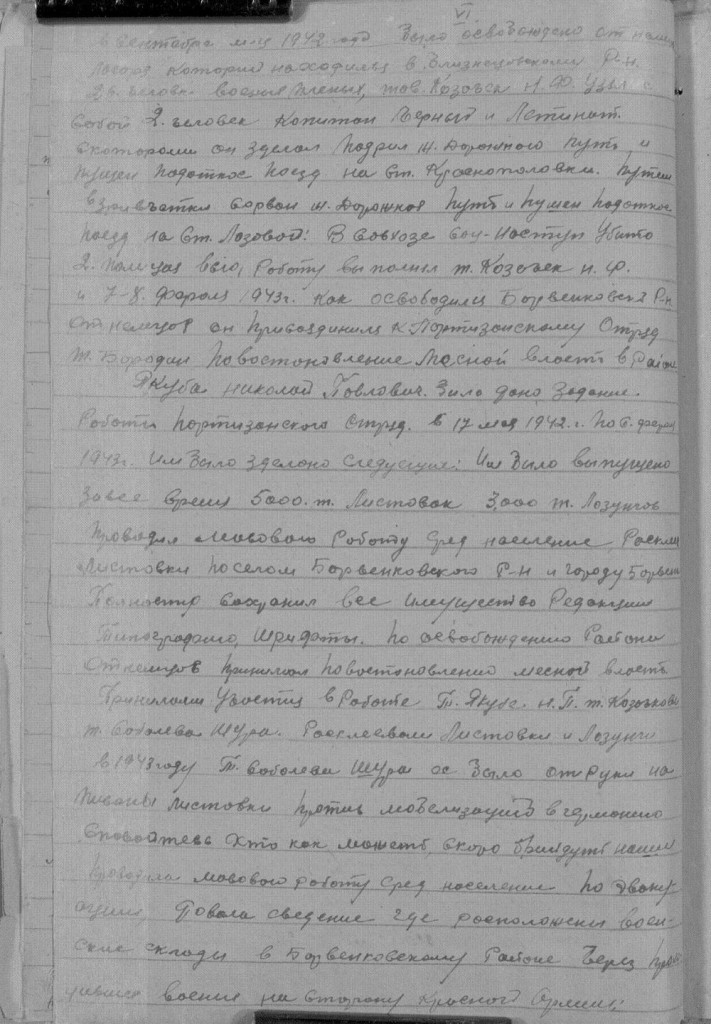 VI
в сентябра м-ца 1942 года Было освобождено от
Лагоря который находилца в Близнецовскому Р-н.
28. человек военнопленых, тов. Козачек Н.Ф. Узял с
собой 2. человек Копитон Черный и Летинонт.
скоторыми он зделол Подрил ж. дорожного путь и
пущен Подоткос Поезд на Ст. Краснополовки. Путем
взривчатки сорван ж. Дорожная Путь и пушен Подоткос
Поезд на Ст. Лозовой: В Совхозе Убито
2. Роботу выполнил т. Козачек н. ф.
и 7-8. февраля 1943 г. Как освободили Борвенковский Р-н
От немцов он Присоздинилса к Портизонскому Отряд
т. Бородин Повостоновление Месной власть в Район
Якуба Николай Повлович. Было дано Задоние.
Робота Портизонского Отряд. с 17 мая 1942 г. По 6. феврал
1943 г. Им Было зделоно Следующия: Им Было выпущено
Завсе время 5000. т. Листовок 3,000 т. Лозунгов
Проводил Мосовою Роботу Сред население, Роскле
Листовки Поселом Борвенковского Р-н и городу Борвен
Полностю Сохронил все имущество Редакции
Типогрофию, Шрифты. По освобождению Района
От немцов Принимол Повостоновлений месной власть
Принимоли Участия в Роботе Т. Якуба. Н. П. т. Козочков
т. Соболева Шура. Росклеевали Листовки и Лозунги
в 1943 году Т. Соболева Шура ос Было отРуки на
писаны листовки Против мобелизоцией в германию
Споcайтесь Хто как может, скоро Прийдуть наши
Проводила мосовою роботу Сред население По Эвоку-
оции, Довала сведение где росположены воен-
ские склады в Борвенковскому Районе Через
военых на Сторону Красной Армии: